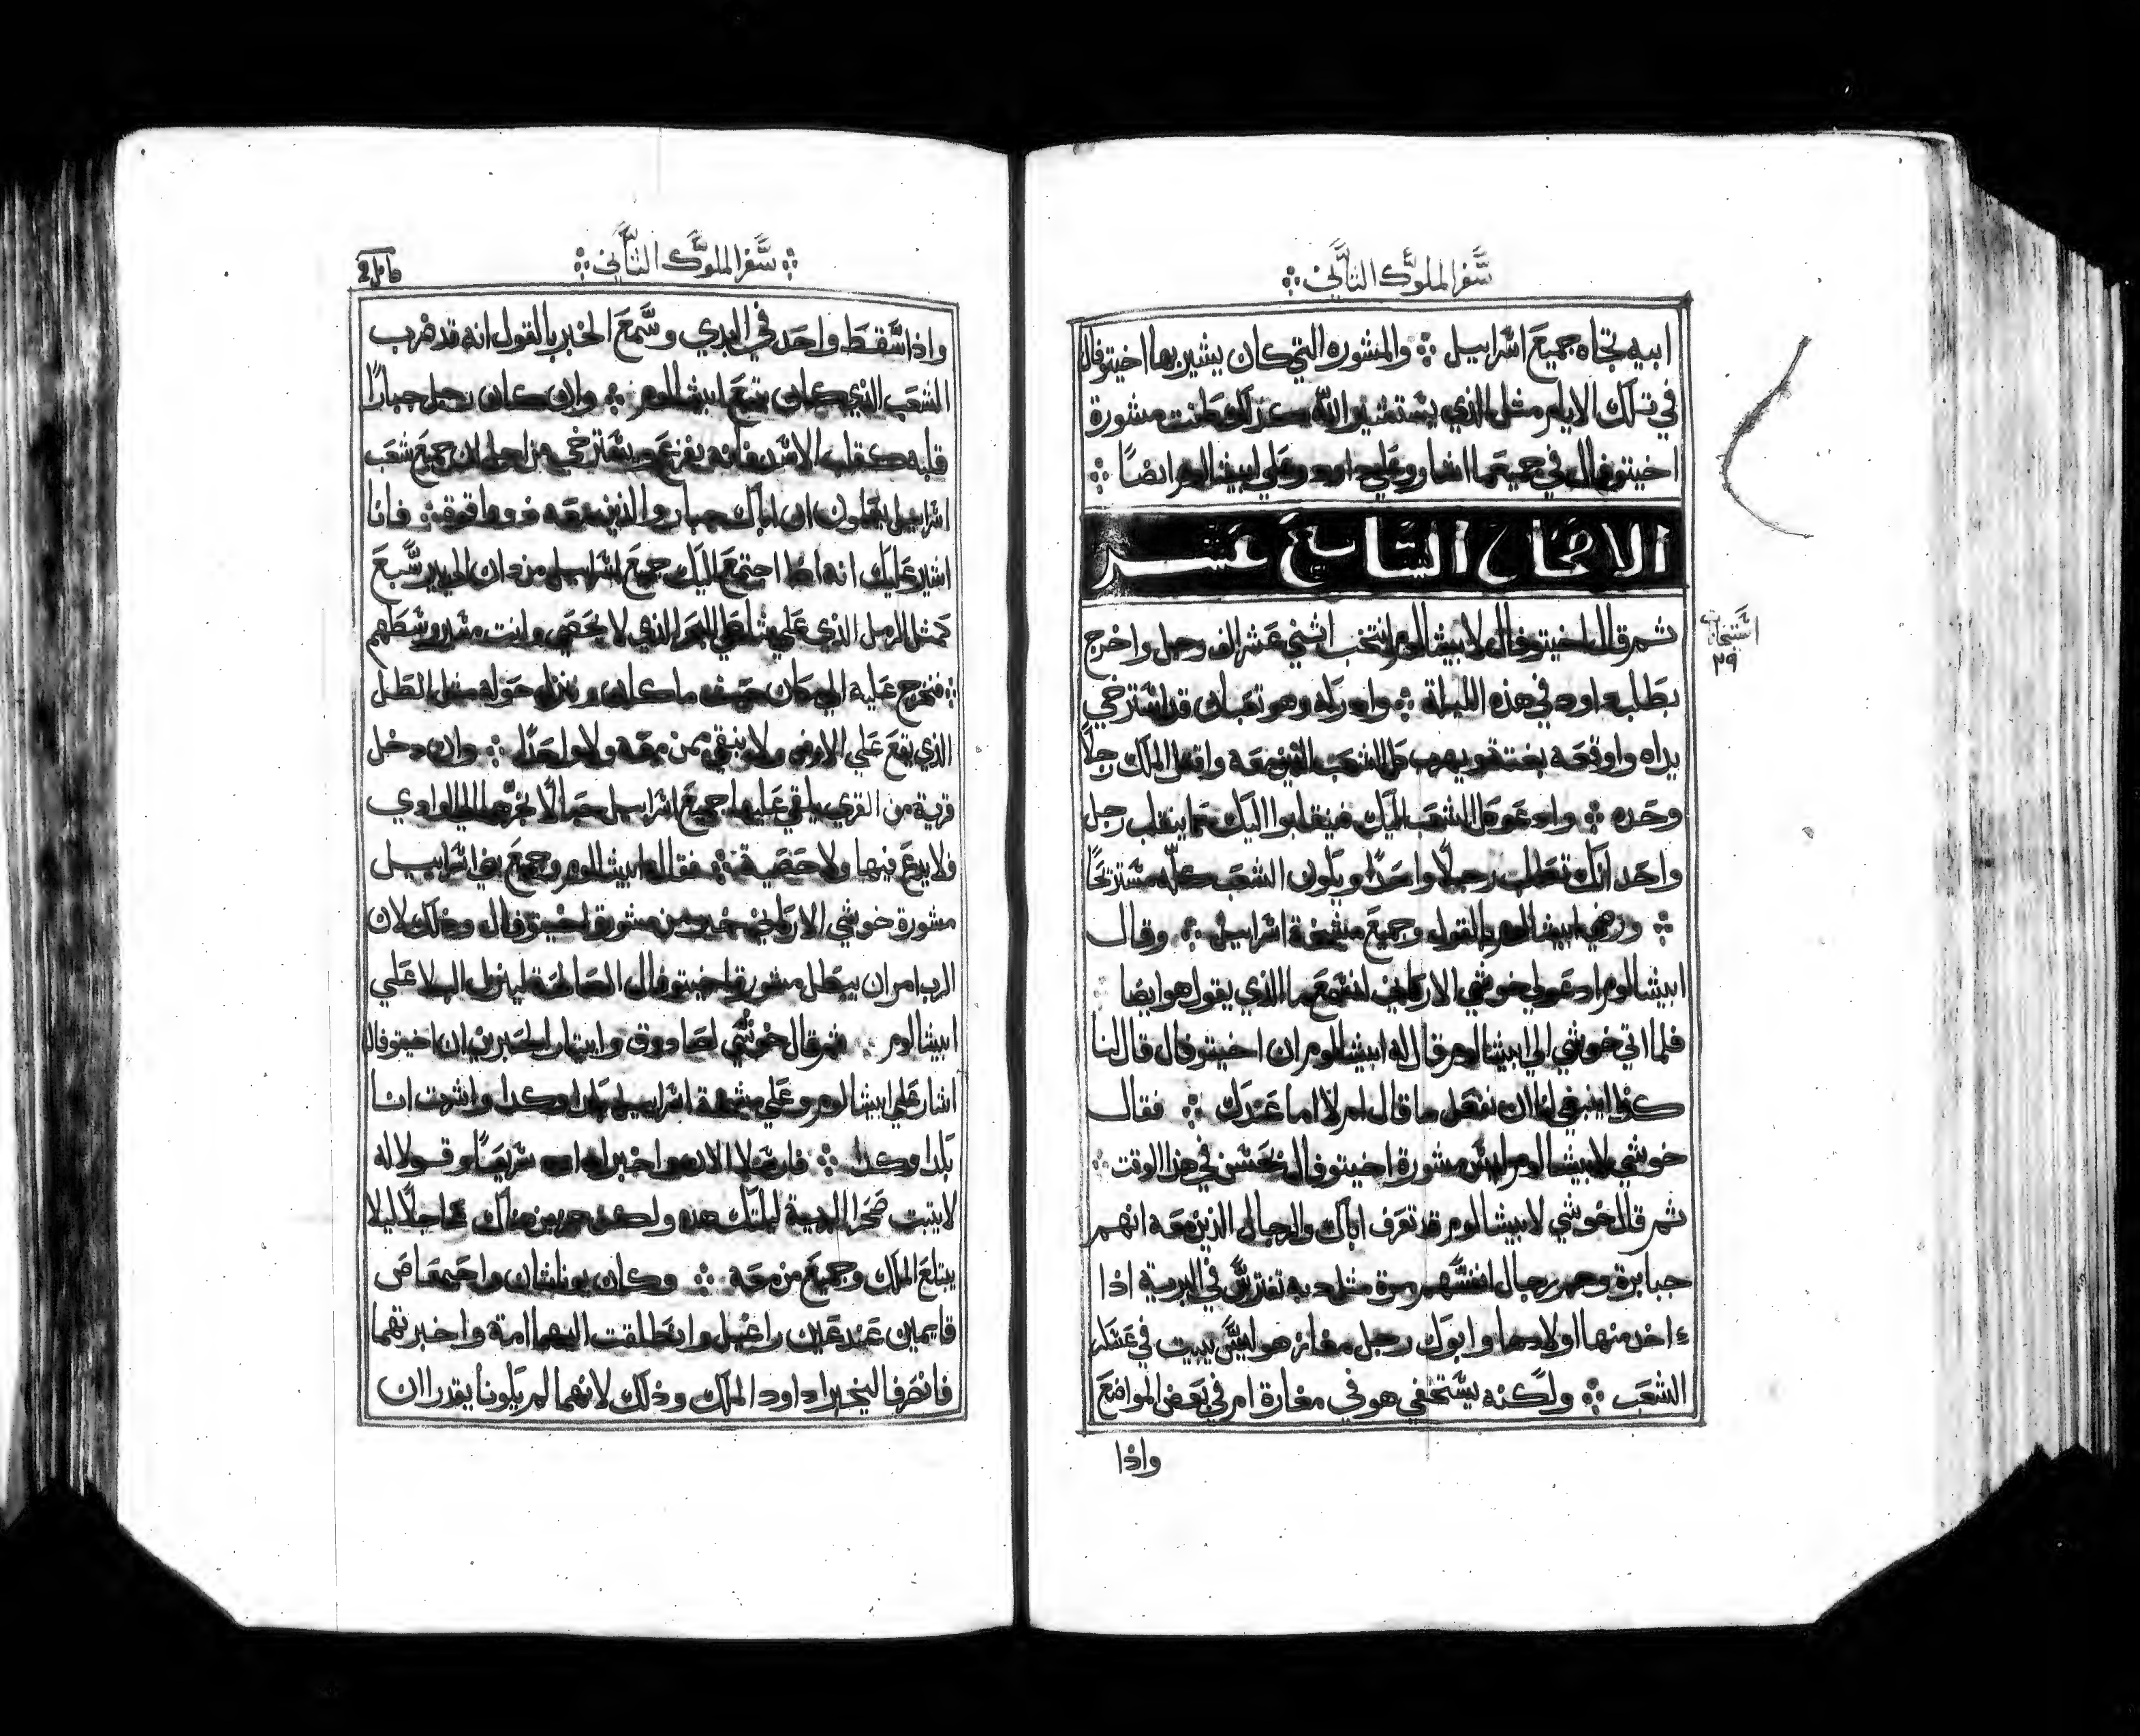 سفر الملوك الثاني
ابيه تجاه جميع اسراييل والمشوره التي كان يشير بها اخيتوفال
في تلك الايام مثل الذي يستشير الله كذلك كانت مشورة
اخيتوفال في جميع ما اشار وعلي داود وعلي ابيشالوم ايضًا
الاصحاح السابع عشر
ثم قال اخيتوفال لابيشالوم انتخب اثني عشر الف رجل واخرج
بطلب داود في هذه الليلة وادركه وهو تعبان قد استرخي
يداه واوقعه بغتة ويهرب كل الشعب الذين معه واقتل الملك رجلاً
وحده وادعو كل الشعب اليك فينقلبوا اليك كما ينقلب رجل
واحد انك تطلب رجلاً واحدًا ويكون الشعب كله مستريحًا
ورضي ابيشالوم بالقول وجميع مشيخة اسراييل وقال
ابيشالوم ادعو لي خوشي الاركاني لنسمع ما الذي يقول هو ايضا
فلما اتي خوشي الي ابيشالوم قال له ابيشالوم ان اخيتوفال قال لنا
كذا اينبغي لنا ان نفعل ما قال ام لا اما عندك فقال
خوشي لابيشالوم ليس مشورة اخيتوفال تحسن في هذا الوقت
ثم قال خوشي لابيشالوم قد تعرف اباك والرجال الذين معه انهم
جبابرة وهم رجال انفسهم مرة مثل دبه تفترس في البرية اذا
اخذ منها اولادها وابوك رجل مغاز هو ليس يبيت في عسكر
الشعب ولكنه يستخفي هو في مغارة ام في بعض المواضع
واذا
سفر الملوك الثاني
واذا سقط واحد في البدي وسمع الخبر بالقول انه قد هرب
الشعب الذي كان تبع ابيشالوم وان كان رجل جبارًا
قلبه كقلب الاسد فانه يفزع ويسترخي من اجل ان جميع شعب
اسراييل يعلمون ان اباك جبار والذين معه ذووا قوة فانا
اشير عليك انه اذا اجتمع اليك جميع اسراييل من دان الي بير سبع
كمثل الرمل الذي علي شاطي البحر الذي لا يحصي وانت في وسطهم
فنخرج عليه الي مكان حيث ما كان وننزل حوله مثل الطل
الذي يقع علي الارض ولا ينبقي ممن معه ولا واحدًا وان دخل
قرية من القري يلقي عليها جميع اسراييل حبالًا نجرها الي الوادي
فلا يدع فيها ولا حصية فقال ابيشالوم وجميع بني اسراييل
مشورة خوشي الاركاني خير من مشورة اخيتوفال وذلك لان
الرب امر ان يبطل مشورة اخيتوفال الصالحة لينزل البلا علي
ابيشالوم ثم قال خوشي لصادوق وابيتار الحبرين ان اخيتوفال
اشار علي ابيشالوم وعلي مشيخة اسراييل بكذا وكذا واشرت انا
بكذا وكذا فارسلا الان واخبرا داود سريعًا وقولا له
لا يتبت صحرا البرية ليلتك هذه ولكن من هناك عاجلًا ليلا
يبتلع الملك وجميع من معه وكان يوناتان واحيمعاص
قايمين عند عين راغيل وانطلقت اليهما امة واخبرتهما
فانحرفا ليخبرا داود الملك وذلك لانهما لم يكونا يقدرا ان